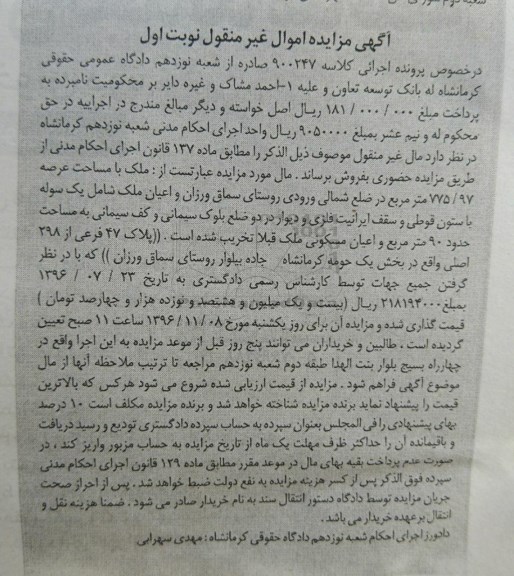 آگهی مزایده اموال غیر منقول نوبت اول
درخصوص پرونده اجرائی کلاسه ۹۰۰۲۴۷ صادره از شعبه نوزدهم دادگاه عمومی حقوقی
کرمانشاه له بانک توسعه تعاون و علیه ۱-احمد مشاک و غیره دایر بر محکومیت نامبرده به
پرداخت مبلغ ۰۰۰ / ۰۰۰ / ۱۸۱ ریـال اصل خواسته و دیگر مبالغ مندرج در اجراییه در حق
محکوم له و نیم عشر بمبلغ ۹۰۵۰۰۰۰ ریـال واحد اجرای احکام مدنی شعبه نوزدهم کرمانشاه
در نظر دارد مال غیر منقول موصوف ذیل الذکر را مطابق ماده ۱۳۷ قانون اجرای احکام مدنی از
طریق مزایده حضوری بفروش برساند . مال مورد مزایده عبارتست از : ملک با مساحت عرصه
۷۷۵/۹۷ متر مربع در ضلع شمالی ورودی روستای سماق ورزان و اعیان ملک شامل یک سوله
با ستون قوطی و سقف ایرانیت فلزی و دیوار در دو ضلع بلوک سیمانی و کف سیمانی به مساحت
حدود ۹۰ متر مربع و اعیان مسکونی ملک قبلا تخریب شده است . ((پلاک ۴۷ فرعی از ۲۹۸
اصلی واقع در بخش یک حومه کرمانشاه جاده بیلوار روستای سماق ورزان )) که با در نظر
گرفتن جمیع جهات توسط کارشناس رسمی دادگستری به تاریخ ۲۳ / ۰۷ / ۱۳۹۶
بمبلغ ۲۱۸۱۹۴۰۰۰ ریـال (بیست و یک میلیون و هشتصد و نوزده هزار و چهارصد تومان )
قیمت گذاری شده و مزایده آن برای روز یکشنبه مورخ ۰۸ / ۱۱ / ۱۳۹۶ ساعت ۱۱ صبح تعیین
گردیده است . طالبین و خریداران می توانند پنج روز قبل از موعد مزایده به این اجرا واقع در
چهارراه بسیج بلوار بنت الهدا طبقه دوم شعبه نوزدهم مراجعه تا ترتیب ملاحظه آنها از مال
موضوع آگهی فراهم شود . مزایده از قیمت ارزیابی شده شروع می شود هرکس که بالاترین
قیمت را پیشنهاد نماید برنده مزایده شناخته خواهد شد و برنده مزایده مکلف است ۱۰ درصد
بهای پیشنهادی را فی المجلس بعنوان سپرده به حساب سپرده دادگستری تودیع و رسید دریافت
و باقیمانده آن را حداکثر ظرف مهلت یک ماه از تاریخ مزایده به حساب مزبور واریز کند ، در
صورت عدم پرداخت بقیه بهای مال در موعد مقرر مطابق ماده ۱۲۹ قانون اجرای احکام مدنی
سپرده فوق الذکر پس از کسر هزینه مزایده به نفع دولت ضبط خواهد شد . پس از احراز صحت
جریان مزایده توسط دادگاه دستور انتقال سند به نام خریدار صادر می شود . ضمنا هزینه نقل و
انتقال بر عهده خریدار می باشد .
دادورز اجرای احکام شعبه نوزدهم دادگاه حقوقی کرمانشاه : مهدی سهرابی